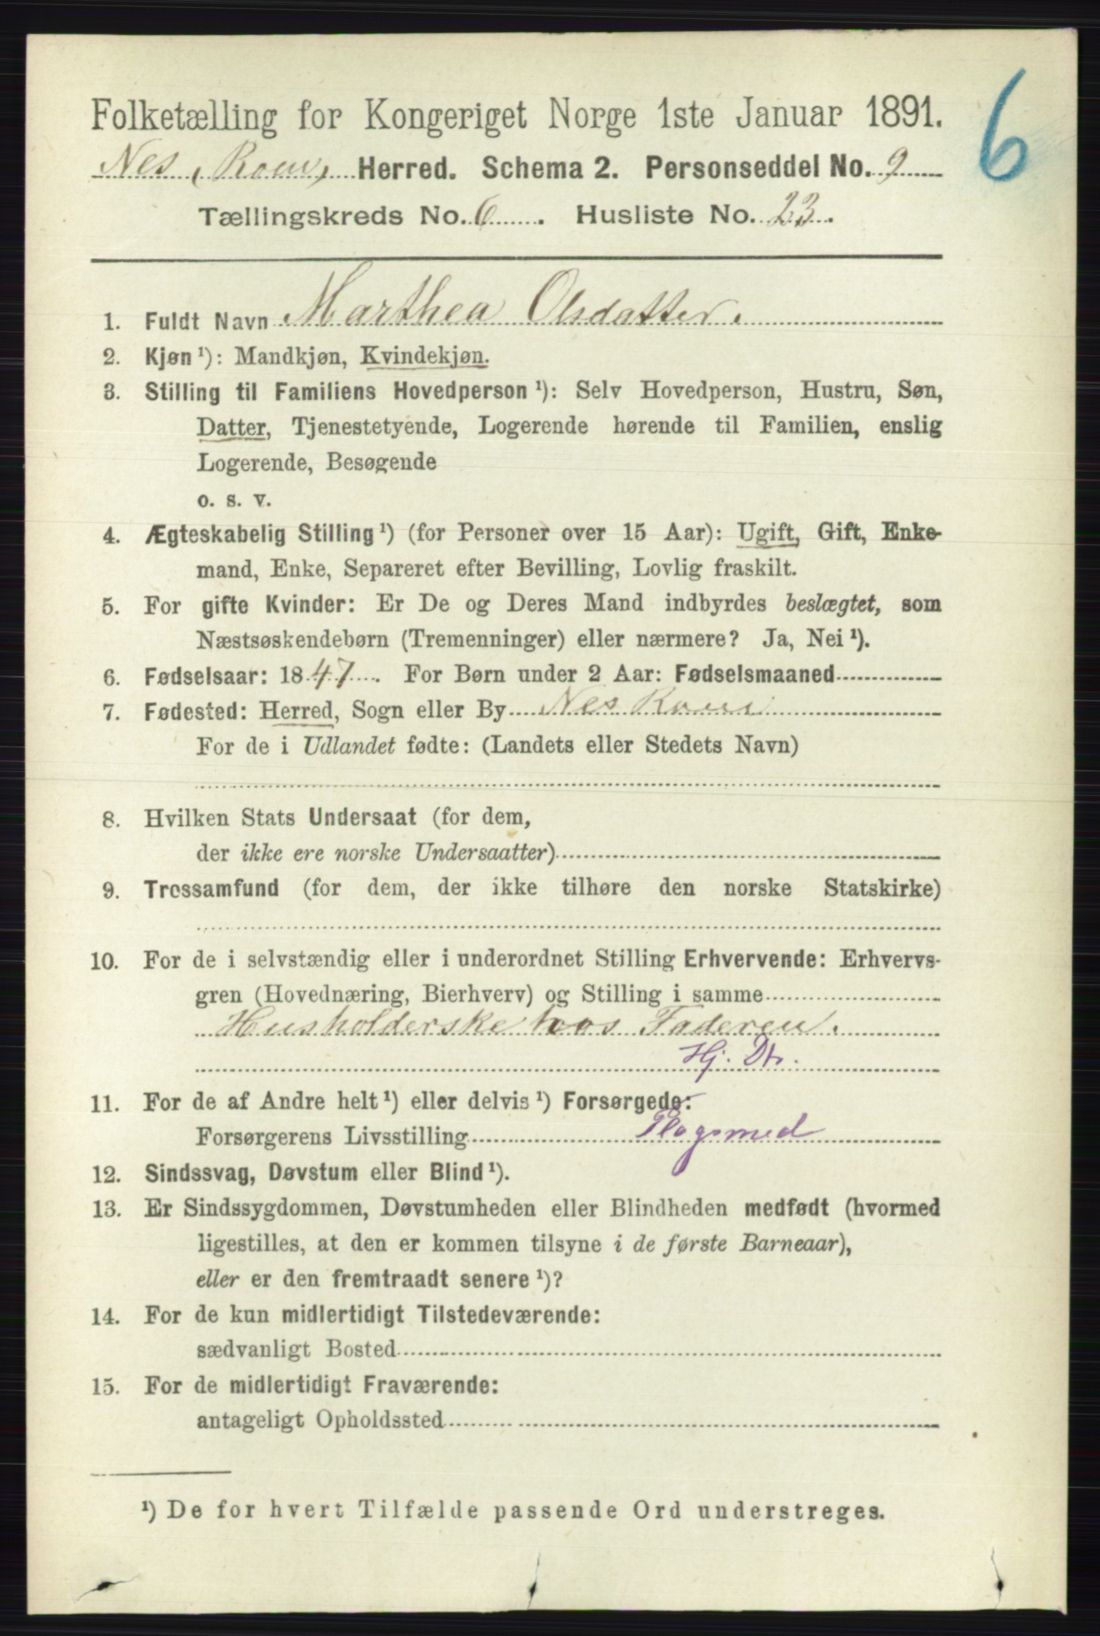 6
Folketælling for Kongeriget Norge 1ste Januar 1891.
Nes, Rom, Herred. Schema 2. Personseddel No. 9
Tællingskreds No. 6. Husliste No. 23.
1. Fuldt Navn Marthea Olsdatter.
2. Kjøn ¹): Mandkjøn, Kvindekjøn.
3. Stilling til Familiens Hovedperson ¹): Selv Hovedperson, Hustru, Søn,
Datter, Tjenestetyende, Logerende hørende til Familien, enslig
Logerende, Besøgende
o. s. v.
4. Ægteskabelig Stilling ¹) (for Personer over 15 Aar): Ugift, Gift, Enke-
mand, Enke, Separeret efter Bevilling, Lovlig fraskilt.
5. For gifte Kvinder: Er De og Deres Mand indbyrdes beslægtet, som
Næstsøskendebørn (Tremenninger) eller nærmere? Ja, Nei ¹).
6. Fødselsaar: 1847. For Børn under 2 Aar: Fødselsmaaned
7. Fødested: Herred, Sogn eller By Nes Rom
For de i Udlandet fødte: (Landets eller Stedets Navn)
8. Hvilken Stats Undersaat (for dem,
der ikke ere norske Undersaatter)
9. Trossamfund (for dem, der ikke tilhøre den norske Statskirke)
10. For de i selvstændig eller i underordnet Stilling Erhvervende: Erhvervs-
gren (Hovednæring, Bierhverv) og Stilling i samme
Husholderske hos Faderen.
Hj. Dtr.
11. For de af Andre helt ¹) eller delvis ¹) Forsørgede:
Forsørgerens Livsstilling Plogsmed
12. Sindssvag, Døvstum eller Blind ¹).
13. Er Sindssygdommen, Døvstumheden eller Blindheden medfødt (hvormed
ligestilles, at den er kommen tilsyne i de første Barneaar),
eller er den fremtraadt senere ¹)?
14. For de kun midlertidigt Tilstedeværende:
sædvanligt Bosted
15. For de midlertidigt Fraværende:
antageligt Opholdssted
¹) De for hvert Tilfælde passende Ord understreges.